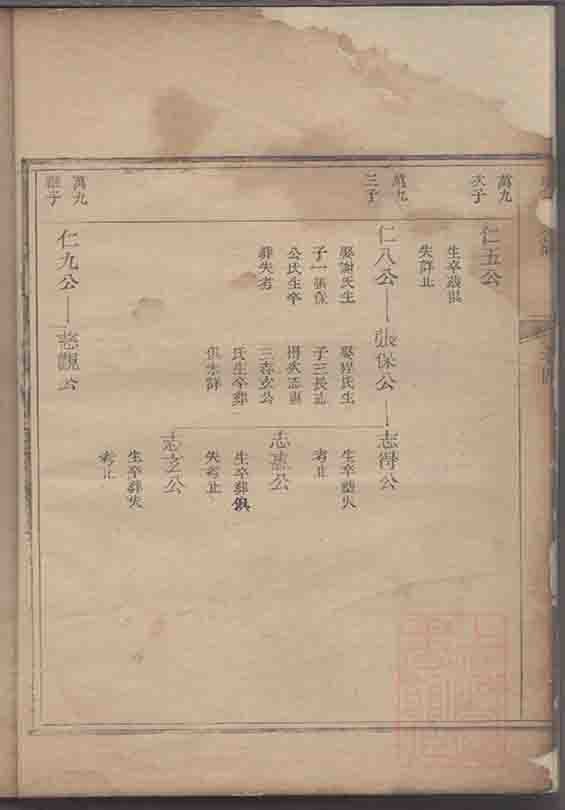 萬九
次子
仁五公
生卒葬俱
失詳止
萬九
三子
仁八公
娶謝氏生
子一張保
公氏生卒
葬失考
張保公
娶程氏生
子三長志
得次志惠
三志玄公
氏生卒葬
俱未詳
志得公
生卒葬失
考止
志惠公
生卒葬俱
失考止
志玄公
生卒葬失
考止
萬九
仁九公
志觀公